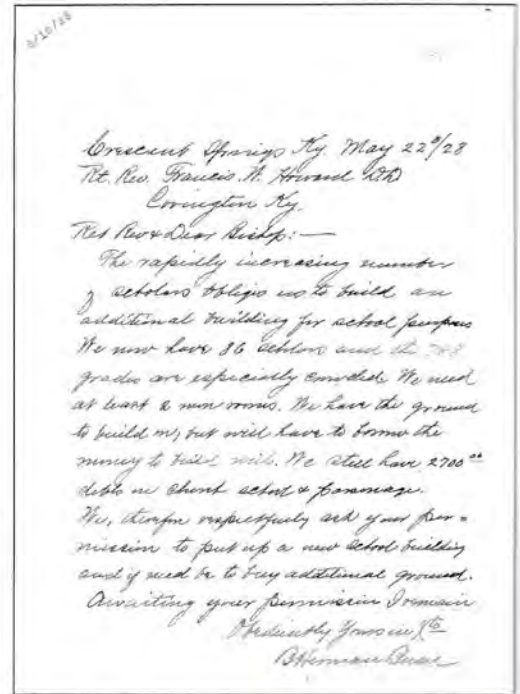 5/10/28
Crescent Springs Ky. May 22ᵈ/28
Rt. Rev. Francis. W. Howard DD
Covington Ky.
Rt Rev & Dear Bishop: —
The rapidly increasing number
of scholars obliges us to build an
additional building for school purposes
We now have 86 scholars and the 7&8
grades are especially crowded. We need
at least 2 new rooms. We have the ground
to build on, but will have to borrow the
money to build with. We still have 2700 ⁰⁰
debts on church school & parsonage.
We, therefore respectfully ask your per=
mission to put up a new school building
and if need be to buy additional ground.
Awaiting your permission I remain
Obediently Yours in Xto
B Herman